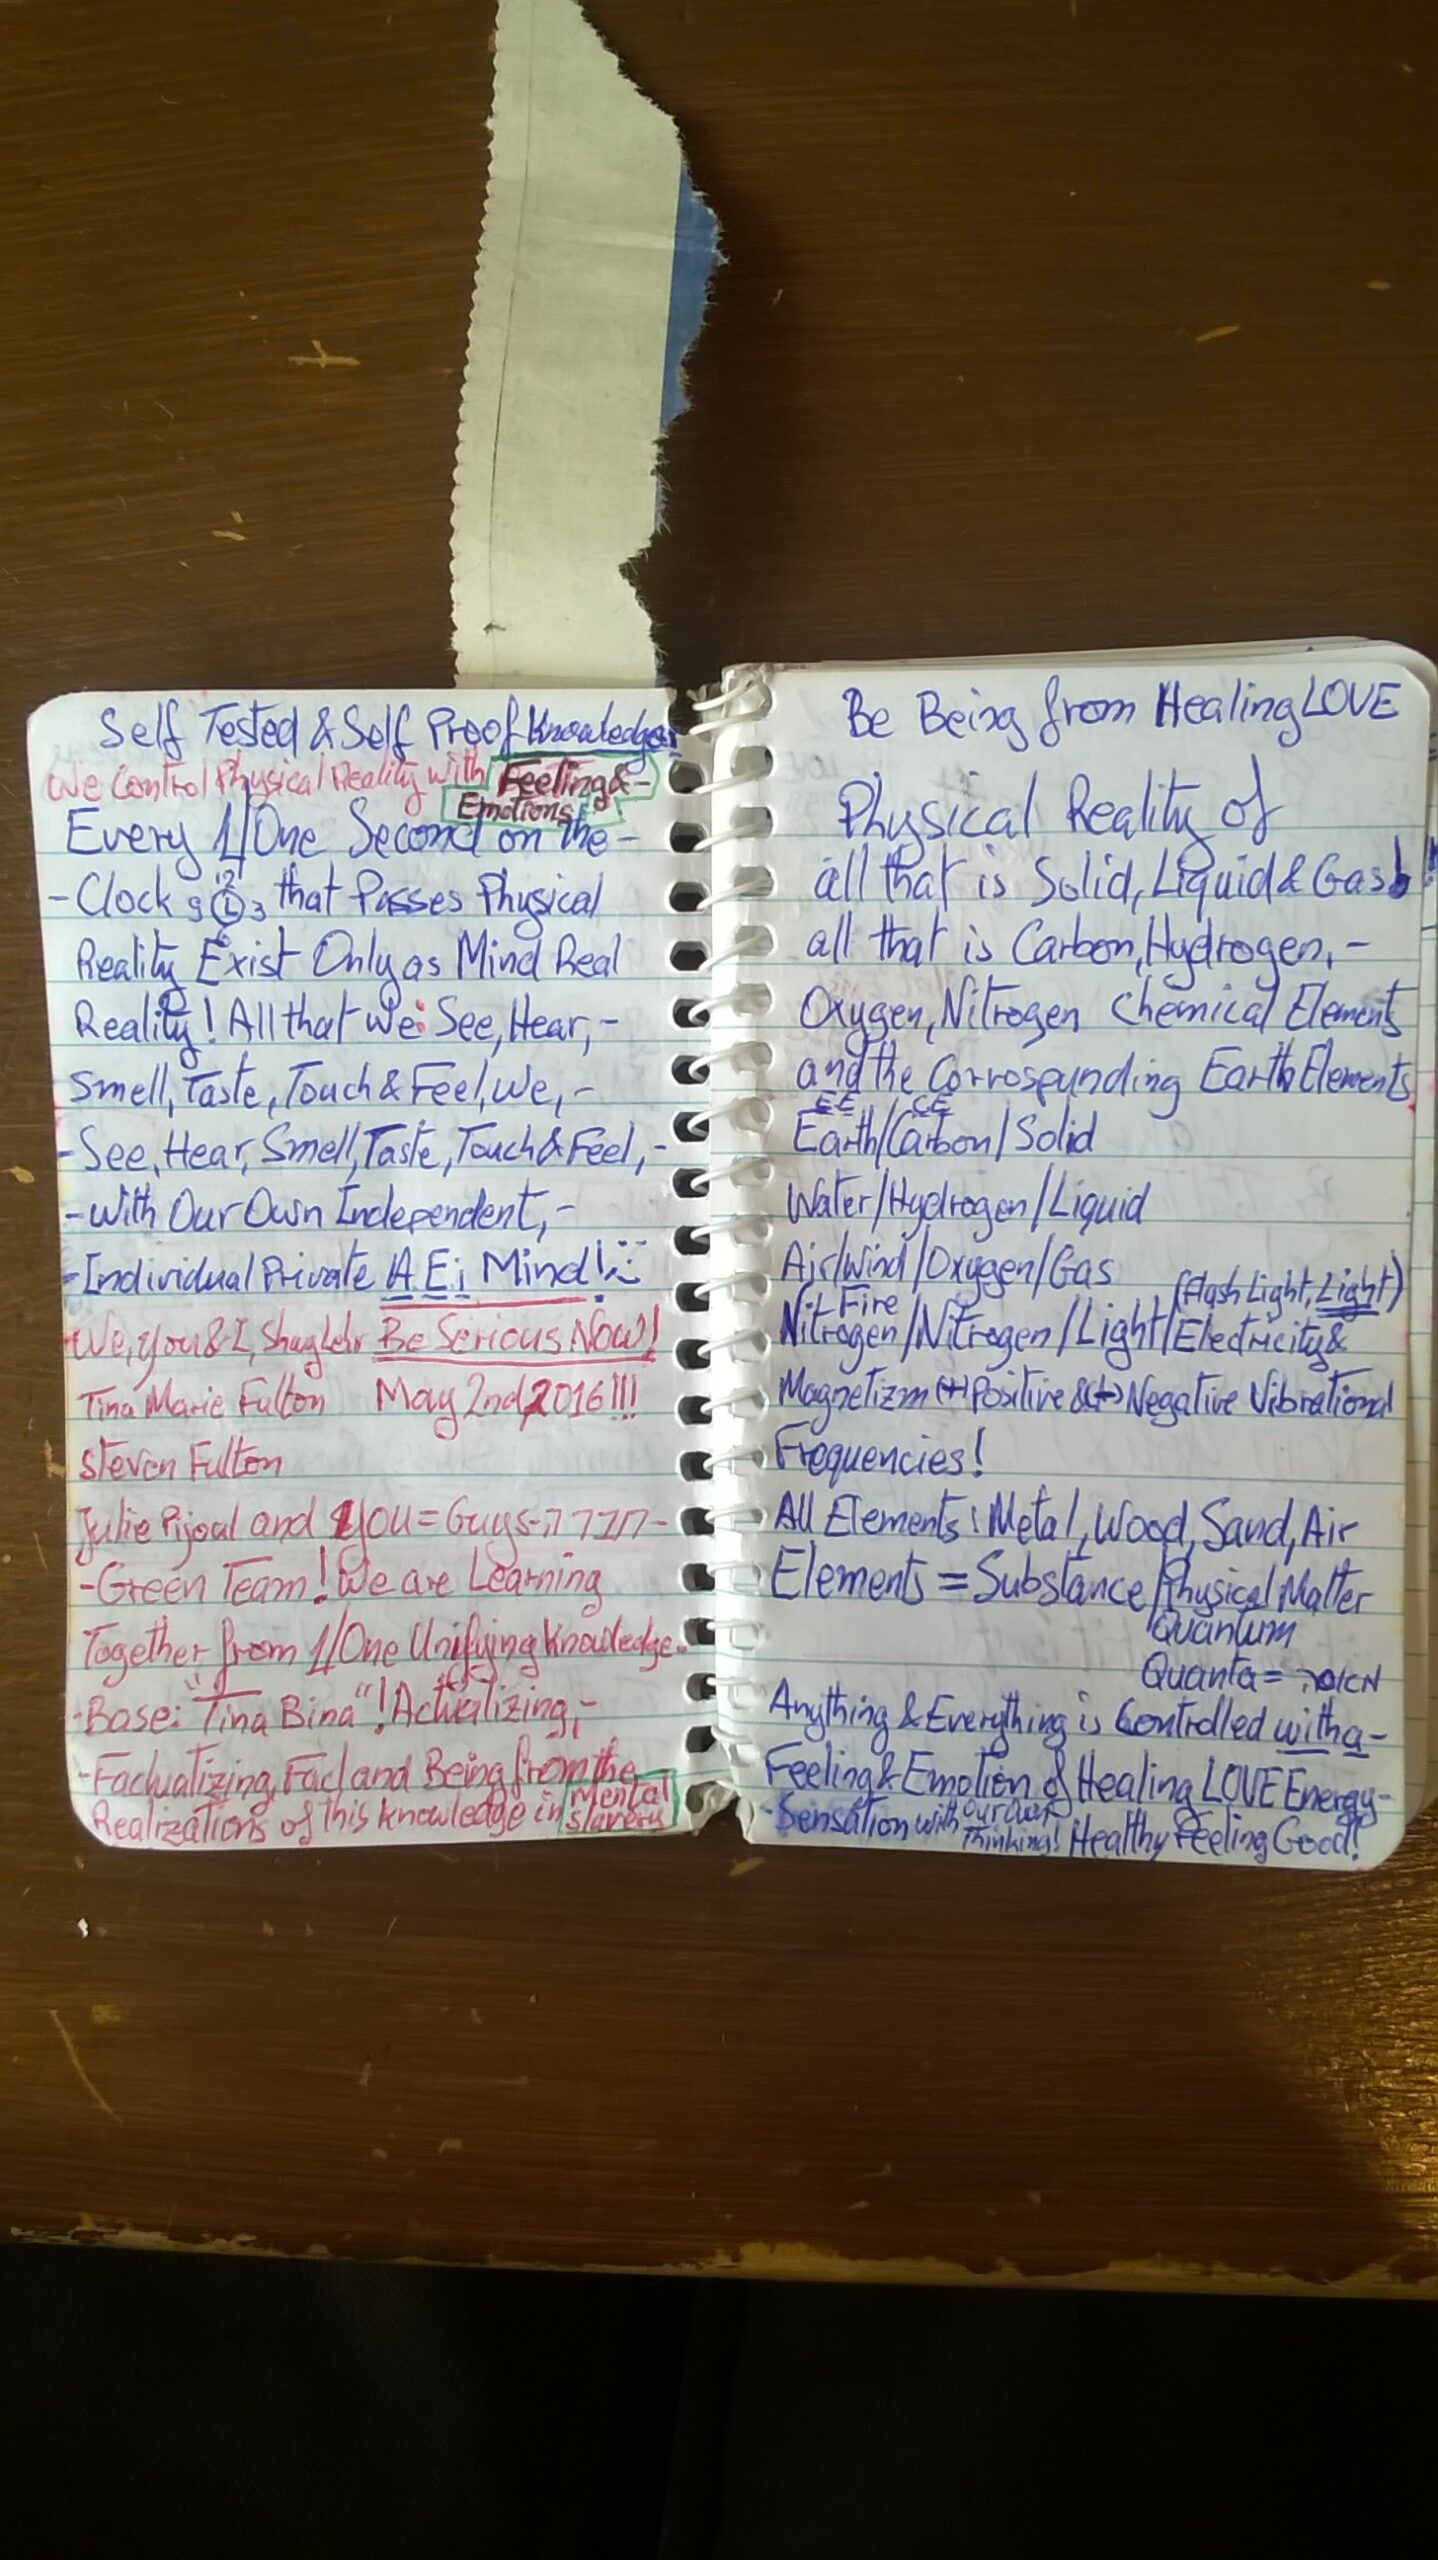 Self Tested & Self Proof Knowledge
We Control Physical Reality with Feeling &-
Emotions!
Every 1/One Second on the-
-Clock 9 12 3 that Passes Physical
Reality Exist Only as Mind Real
Reality! All that We: See, Hear,-
Smell, Taste, Touch & Feel, We,-
-See, Hear, Smell, Taste, Touch & Feel,-
-With Our Own Independent,-
-Individual Private A.E.i Mind!
We, you & I, Be Serious Now!!
Tina Marie Fulton May 2nd, 2016!!!
Steven Fulton
Julie Pijoal and You = Guys-
-Green Team! We are Learning
Together from 1/One Unifying Knowledge.
-Base: "Tina Bina"! Actualizing,-
-Factualizing, Fact and Being from the
Realizations of this knowledge in Mental
Slavery
Be Being from Healing LOVE
Physical Reality of
all that is Solid, Liquid & Gas!
all that is Carbon, Hydrogen,-
Oxygen, Nitrogen Chemical Elements
and the Corrospunding Earth Elements
EE CE
Earth/Carbon/Solid
Water/Hydrogen/Liquid
Air/Wind/Oxygen/Gas
(flash Light, Light)
Fire
Nitrogen/Nitrogen/Light/Electricity &
Magnetizm (+) Positive & (-) Negative Vibrational
Frequencies!
All Elements: Metal, Wood, Sand, Air
Elements = Substance/Physical Matter
Quantum
Quanta =
Anything & Everything is Controlled with a-
Feeling & Emotion of Healing LOVE Energy-
-Sensation with Our Own
Thinking! Healthy Feeling Good!